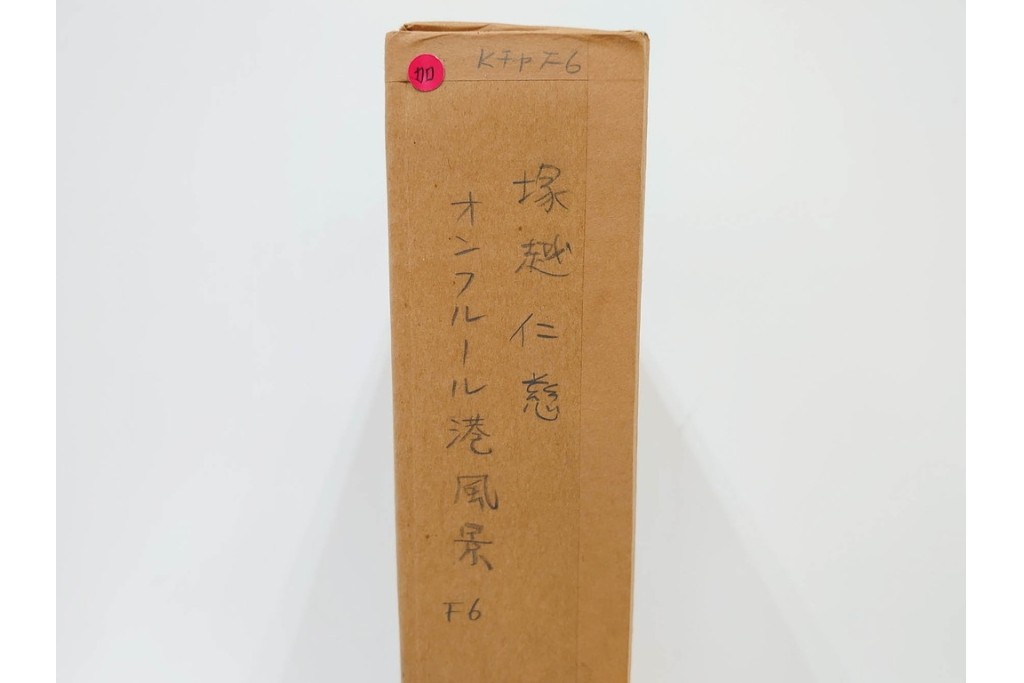 加
KチャF6
塚越仁慈
オンフルール港風景
F6